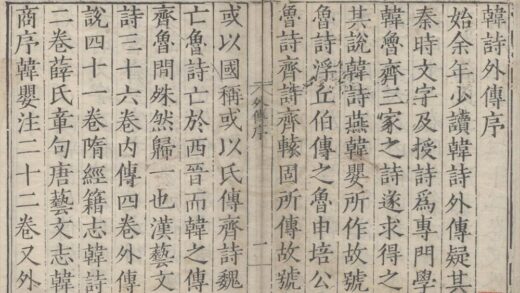 韓詩外傳序
始余年少讀韓詩外傳疑其
秦時文字及授詩爲專門學
韓魯齊三家之詩遂求得之
其說韓詩燕韓嬰所作故號
韓詩浮丘伯傳之魯申培公
魯詩齊詩齊轅固所傳故號
外傳序
一
或以國稱或以氏傳齊詩魏
亡魯詩亡於西晉而韓之傳
齊魯間殊然歸一也漢藝文
詩三十六卷內傳四卷外傳
說四十一卷隋經籍志韓詩
二卷薛氏章句唐藝文志韓
商序韓嬰注二十二卷又外